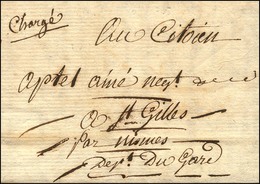 Chargé
Au Citoien
aptel ainé negt.
a St Gilles
par nismes
Dept. Du Gard